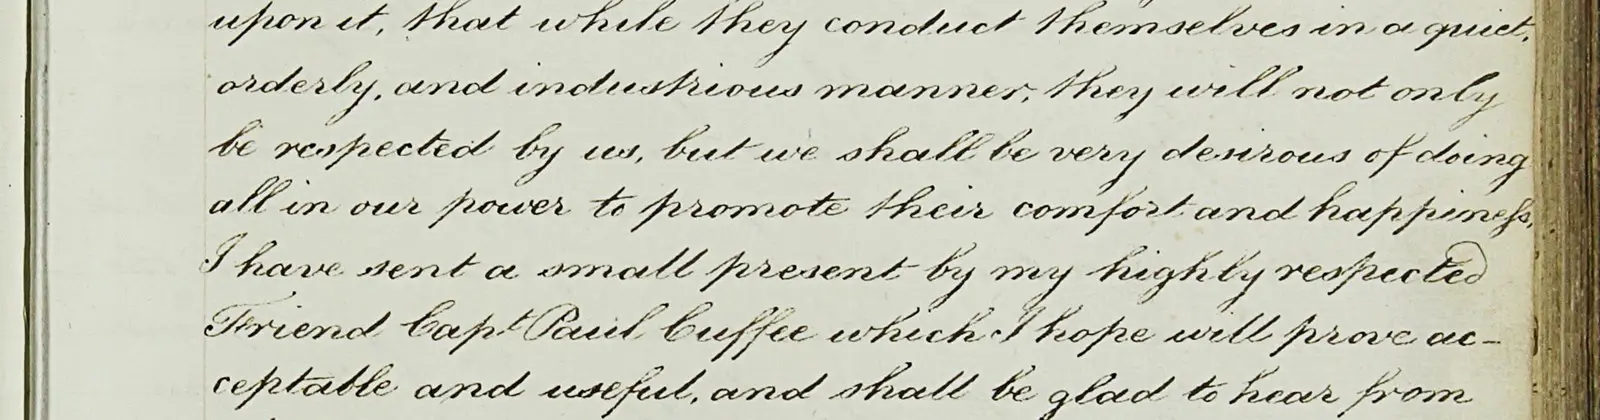 upon it, that while they conduct themselves in a quiet,
orderly, and industrious manner, they will not only
be respected by us, but we shall be very desirous of doing
all in our power to promote their comfort and happiness,
I have sent a small present by my highly respected
Friend Capt Paul Cuffee which I hope will prove ac-
ceptable and useful, and shall be glad to hear from